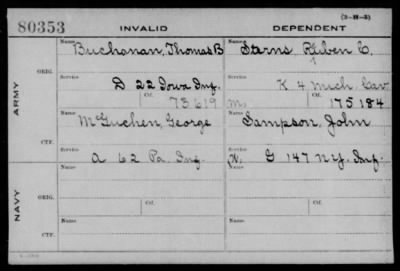 (3-H-5)
80353 INVALID DEPENDENT
Name Buchanan, Thomas B Name Sterns, Reuben C.
ARMY
ORIG. Service D 22 Iowa Inf. Service K 4 Mich Cav
Ctf. 73619 M. Ctf. 175184
Name McGuchen, George Name Sampson, John
CTF. Service A 62 Pa. Inf. Service W. G 147 N.Y. Inf.
NAVY
ORIG. Name Name
Service Ctf. Service Ctf.
CTF. Name Name